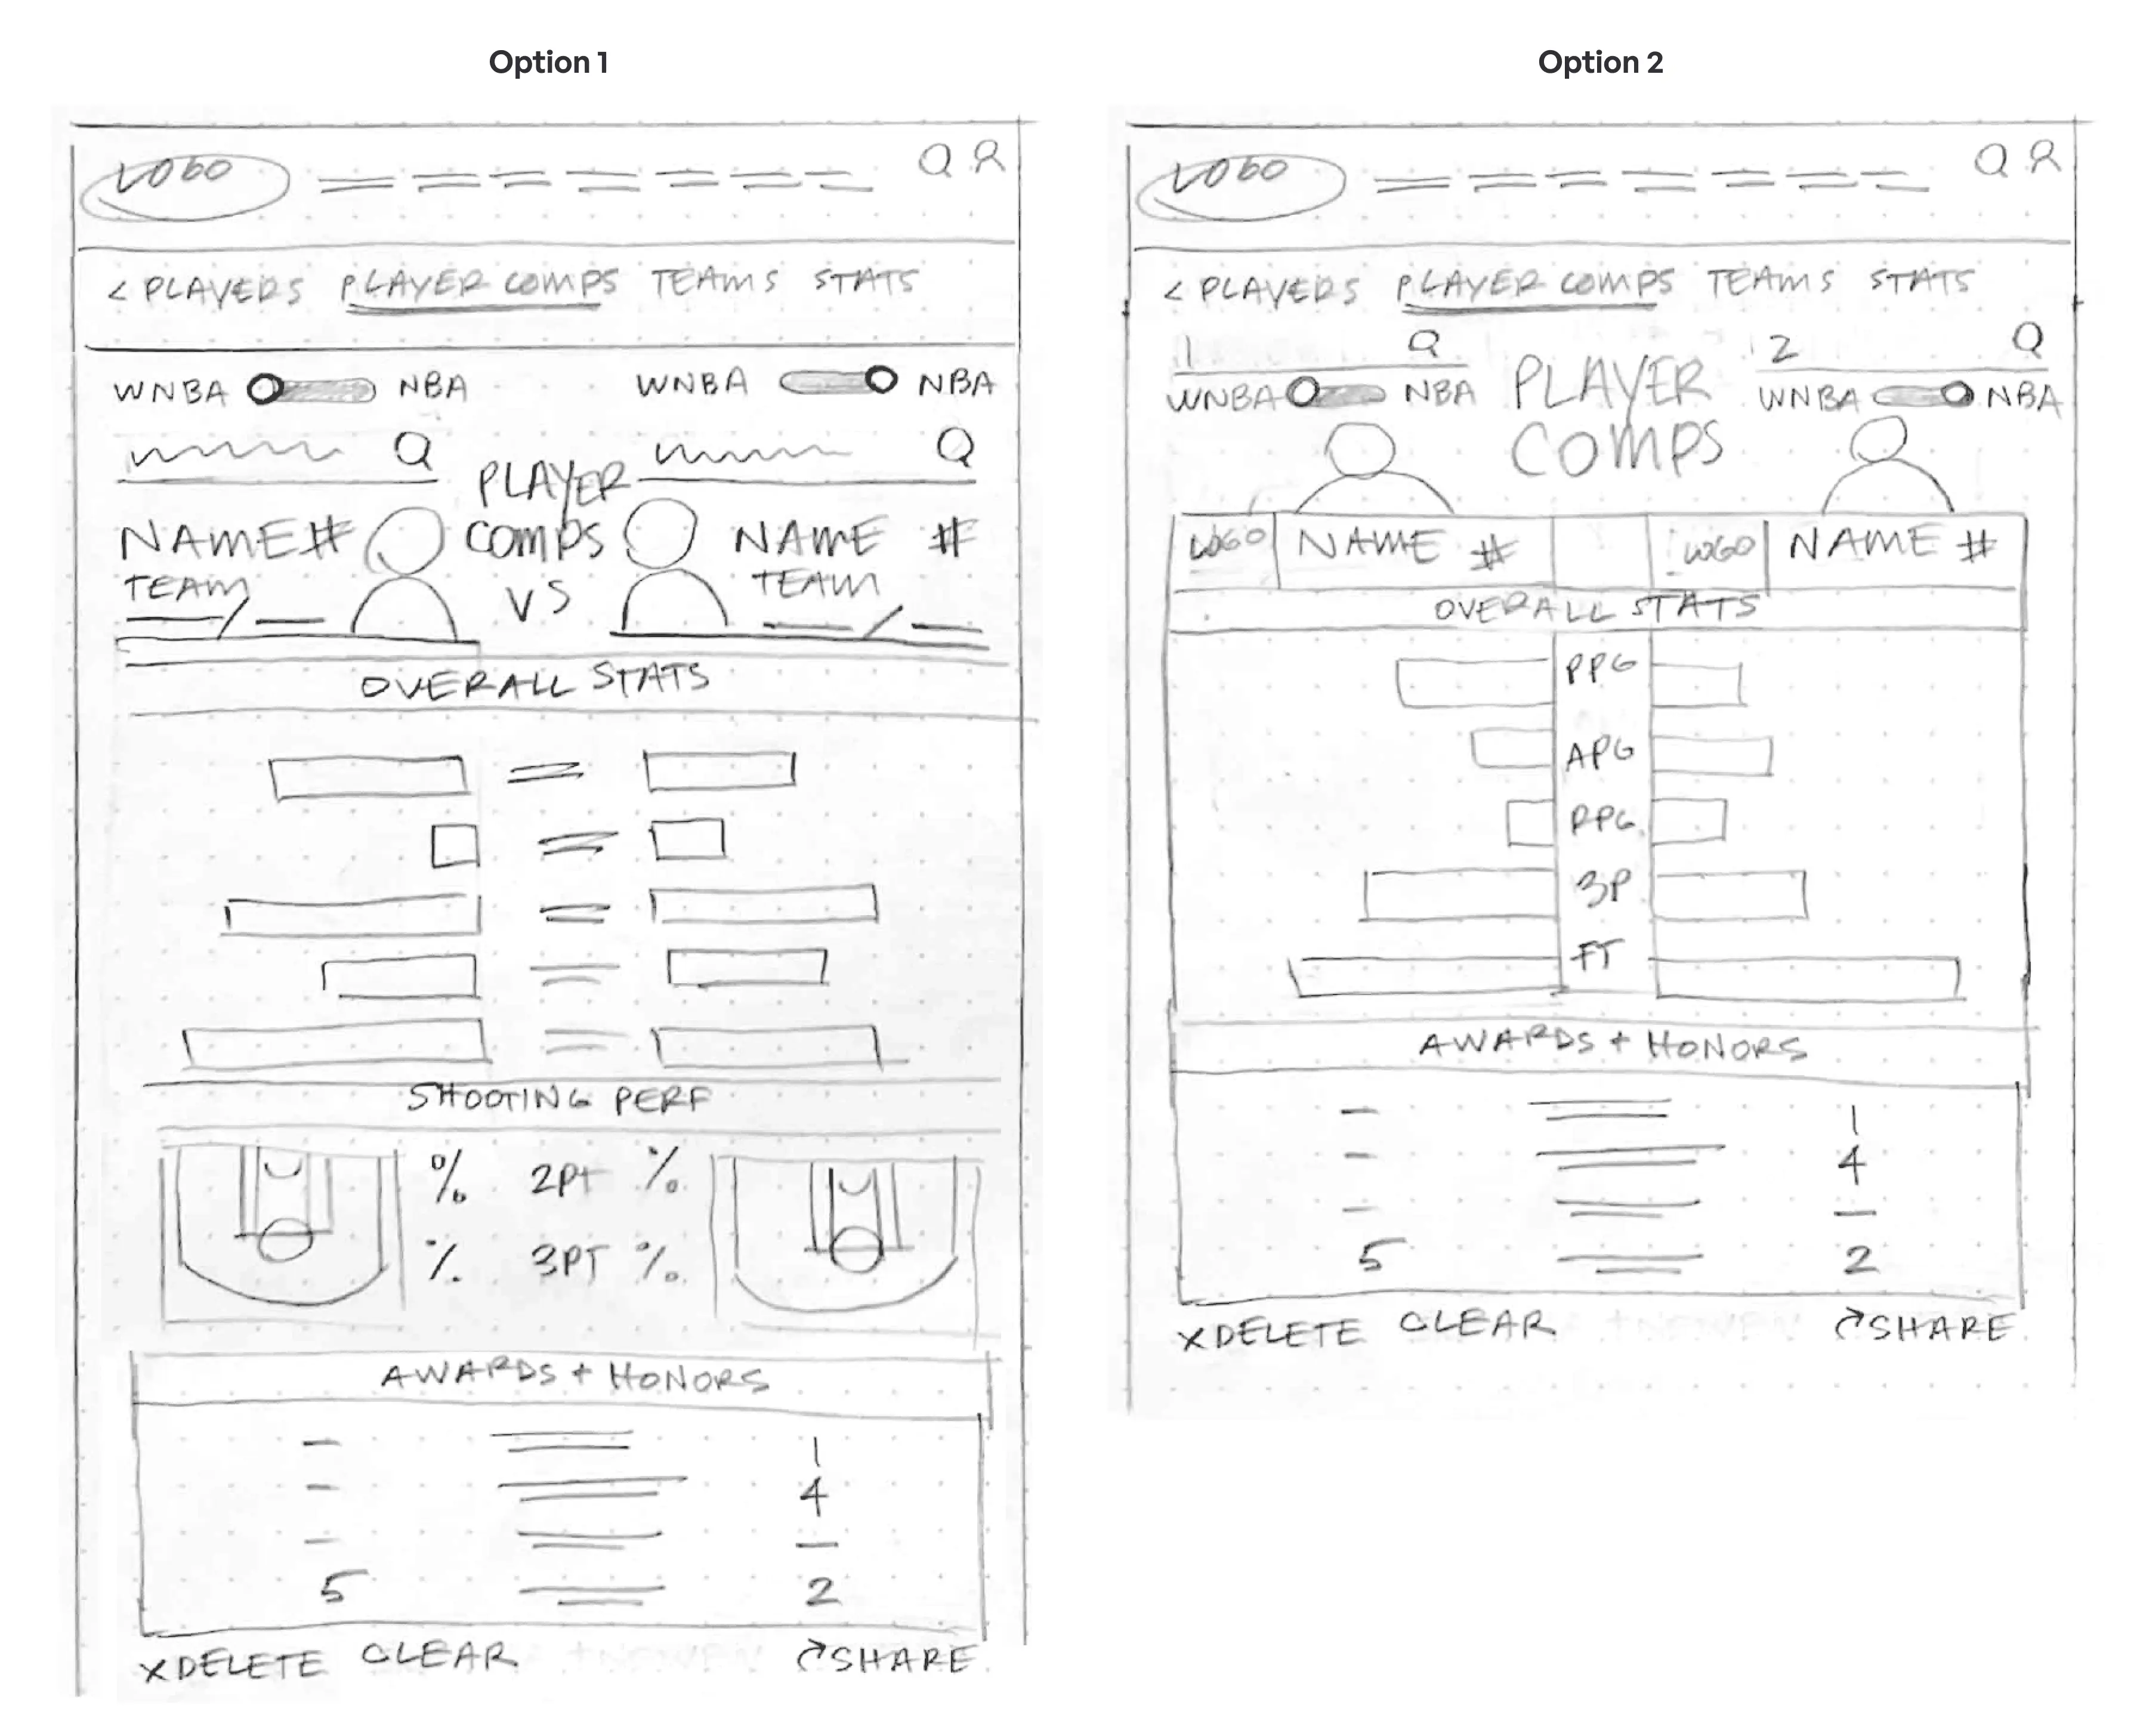 Option 1
LOGO
< PLAYERS PLAYER COMPS TEAMS STATS
WNBA NBA WNBA NBA
PLAYER
COMPS
VS
NAME #
TEAM
NAME #
TEAM
OVERALL STATS
SHOOTING PERF
% 2Pt %
% 3PT %
AWARDS + HONORS
1
4
5 2
X DELETE CLEAR SHARE
Option 2
LOGO
< PLAYERS PLAYER COMPS TEAMS STATS
1 2
WNBA NBA WNBA NBA
PLAYER
COMPS
LOGO NAME # LOGO NAME #
OVERALL STATS
PPG
APG
RPG
3P
FT
AWARDS + HONORS
1
4
5 2
X DELETE CLEAR SHARE